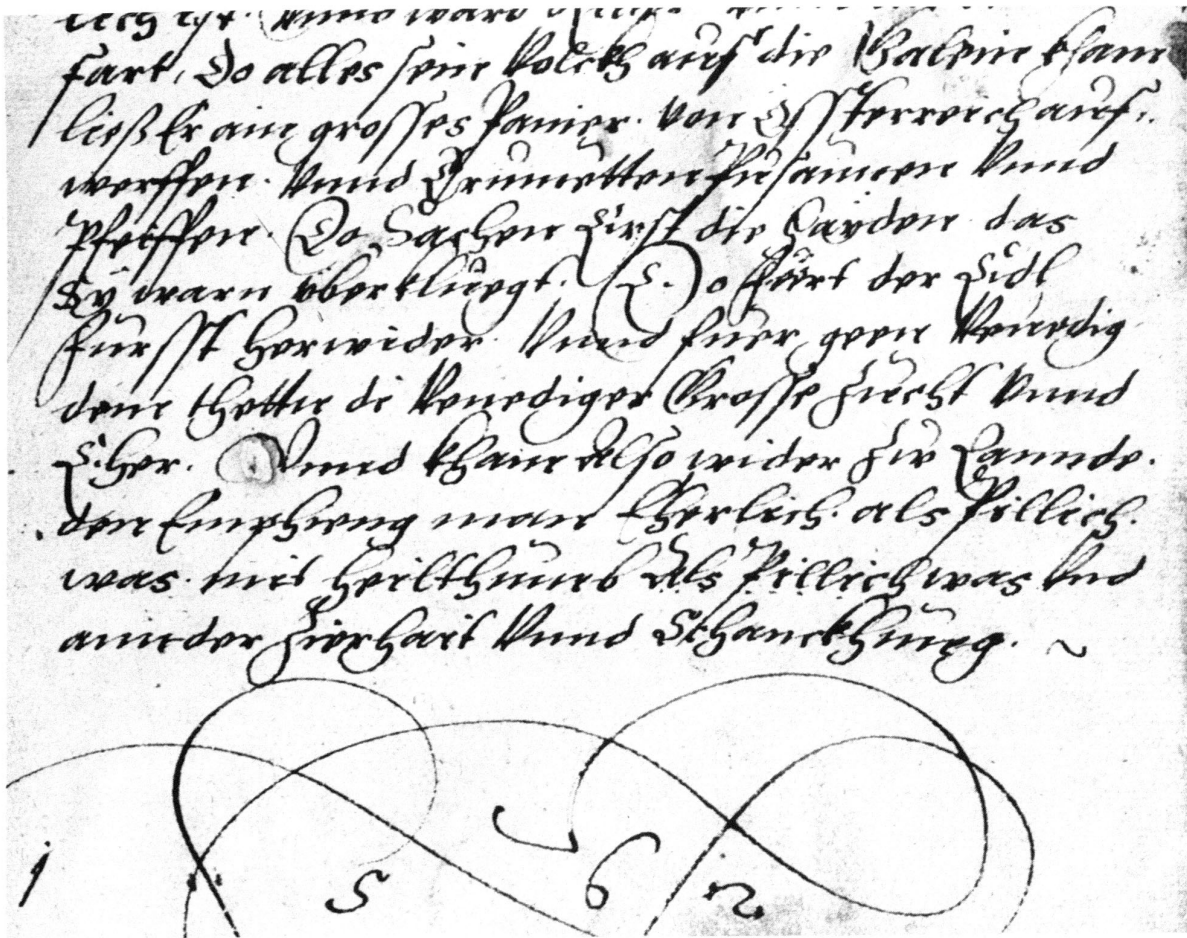 lich ist. Vnnd ward
fart, Do alles sein Volckh auf die Galein kham
ließ Er ain grosses Panier. von Össterreich auf,.
werffen. Vnnd Trumetten Pusaunen Vnnd
Pfeiffen. Do Sachen Erst die Hayden das
Sy warn vberkluegt. (D.) o Fuert der Edl
Fursst herwider. Vnnd fuer geen Venedig
dem thettn di Venediger Grosse Zucht Vnnd
Eher. Vnnd kham Also wider Zu Lannde.
den Emphieng man Eherlich. als Pillich.
was. mit heilthumb Als Pillich was Vnd
annder Zierhait Vnnd Schanckhung. ~
1 5 6 2